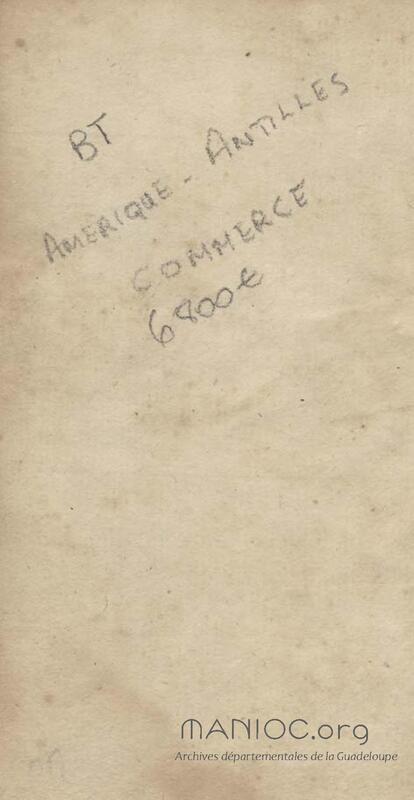 BT
AMERIQUE - ANTILLES
COMMERCE
6800€
MANIOC.org
Archives départementales de la Guadeloupe